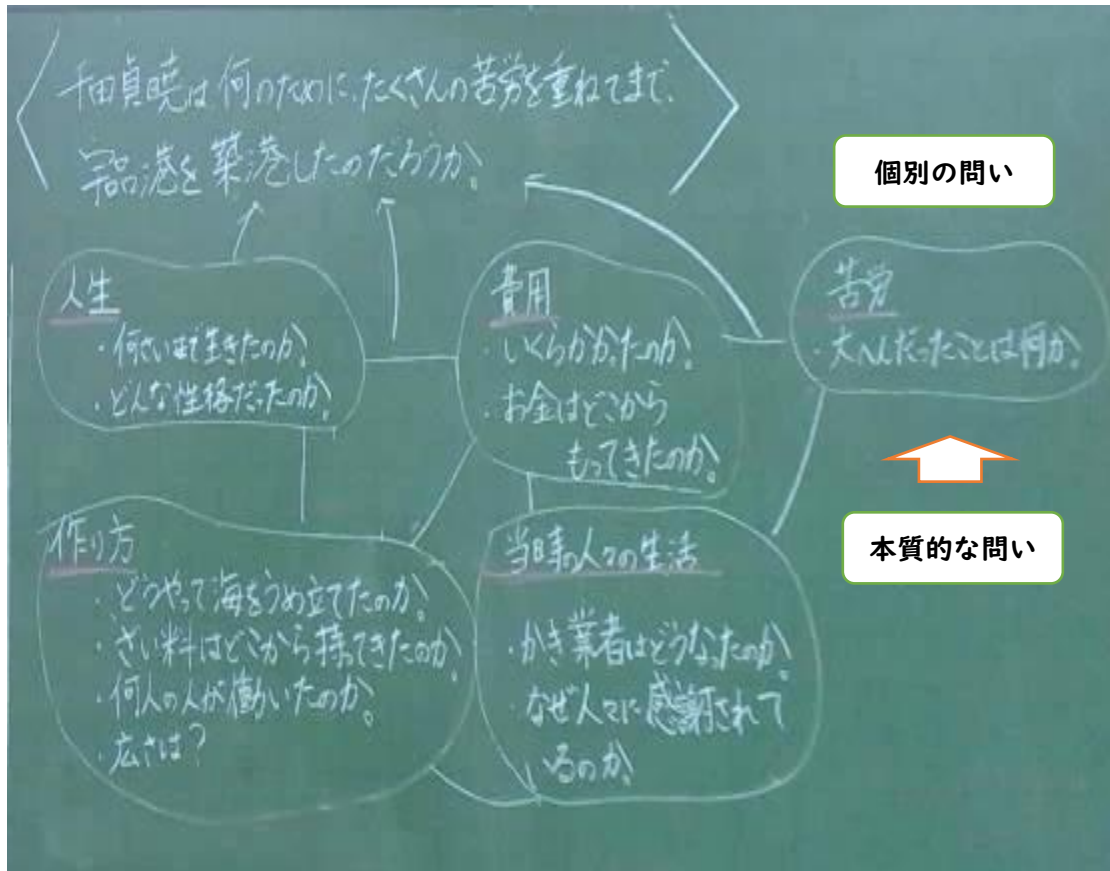 千田貞暁は何のために、たくさんの苦労を重ねてまで、
宇品港を築港したのだろうか。
個別の問い
人生
・何さいまで生きたのか。
・どんな性格だったのか。
費用
・いくらかかったのか。
・お金はどこから
もってきたのか。
苦労
・大へんだったことは何か。
本質的な問い
作り方
・どうやって海をうめ立てたのか。
・ざい料はどこから持ってきたのか。
・何人の人が働いたのか。
・広さは?
当時の人々の生活
・かき業者はどうなったのか。
・なぜ人々に感謝されて
いるのか。